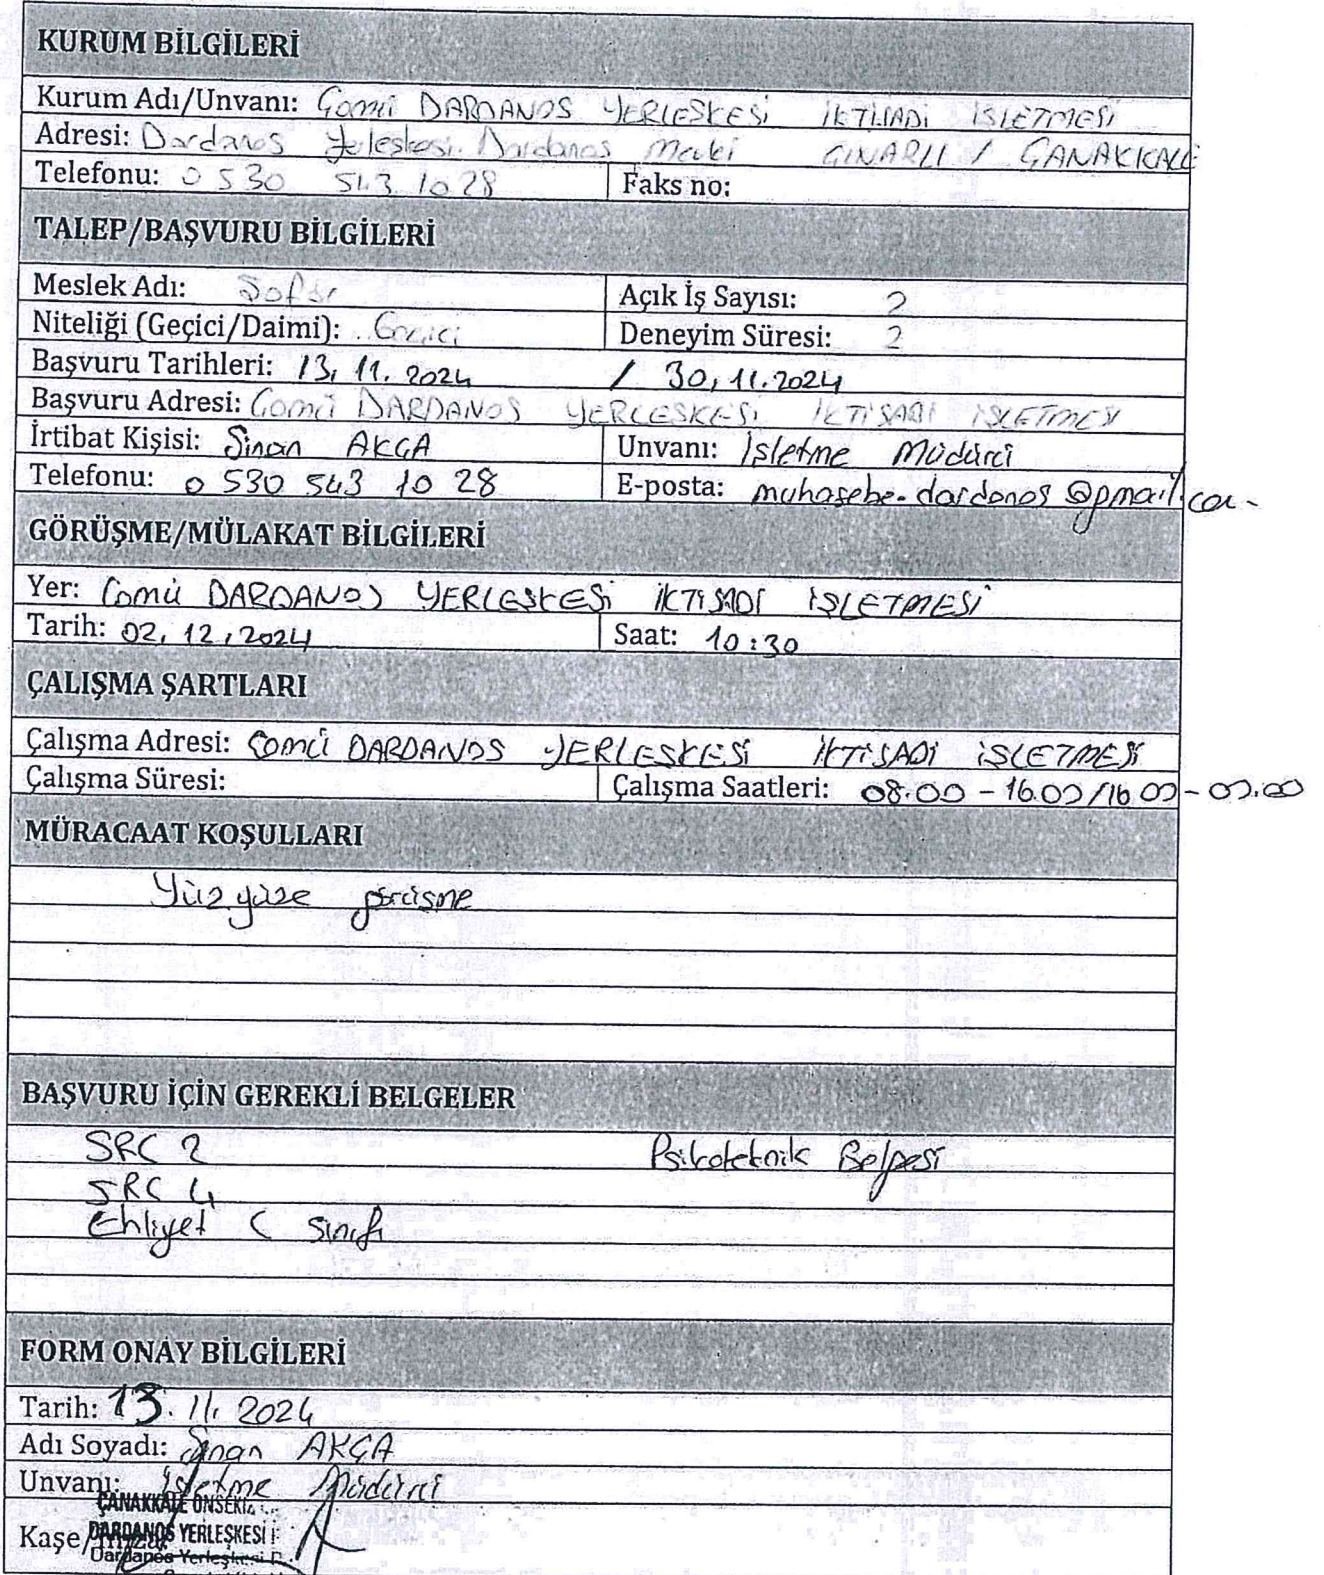 KURUM BİLGİLERİ
Kurum Adı/Unvanı: Çomü DARDANOS YERLEŞKESİ İKTİSADİ İŞLETMESİ
Adresi: Dardanos Yerleşkesi Dardanos Mevki ÇINARLI / ÇANAKKALE
Telefonu: 0 530 543 10 28 Faks no:
TALEP/BAŞVURU BİLGİLERİ
Meslek Adı: Şoför Açık İş Sayısı: 2
Niteliği (Geçici/Daimi): Geçici Deneyim Süresi: 2
Başvuru Tarihleri: 13.11.2024 / 30.11.2024
Başvuru Adresi: Çomü DARDANOS YERLEŞKESİ İKTİSADİ İŞLETMESİ
İrtibat Kişisi: Sinan AKÇA Unvanı: İşletme Müdürü
Telefonu: 0 530 543 10 28 E-posta: muhasebe.dardanos@gmail.com
GÖRÜŞME/MÜLAKAT BİLGİLERİ
Yer: Çomü DARDANOS YERLEŞKESİ İKTİSADİ İŞLETMESİ
Tarih: 02.12.2024 Saat: 10:30
ÇALIŞMA ŞARTLARI
Çalışma Adresi: Çomü DARDANOS YERLEŞKESİ İKTİSADİ İŞLETMESİ
Çalışma Süresi: Çalışma Saatleri: 08.00 - 16.00 / 16.00 -
MÜRACAAT KOŞULLARI
Yüz yüze görüşme
BAŞVURU İÇİN GEREKLİ BELGELER
SRC 2 Psikoteknik Belgesi
SRC 4
Ehliyet C sınıfı
FORM ONAY BİLGİLERİ
Tarih: 13.11.2024
Adı Soyadı: Sinan AKÇA
Unvanı: İşletme Müdürü
ÇANAKKALE ONSEKİZ
Kaşe/İmza:
DARDANOS YERLEŞKESİ İ
Dardanos Yerleşkesi